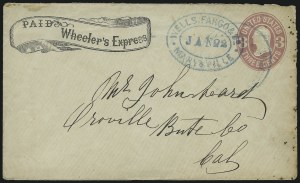 PAID
Wheeler's Express
WELLS, FARGO & Co
JAN 22
MARYSVILLE
UNITED STATES
3
THREE CENTS
Mr John heard
Oroville Bute Co
Cal